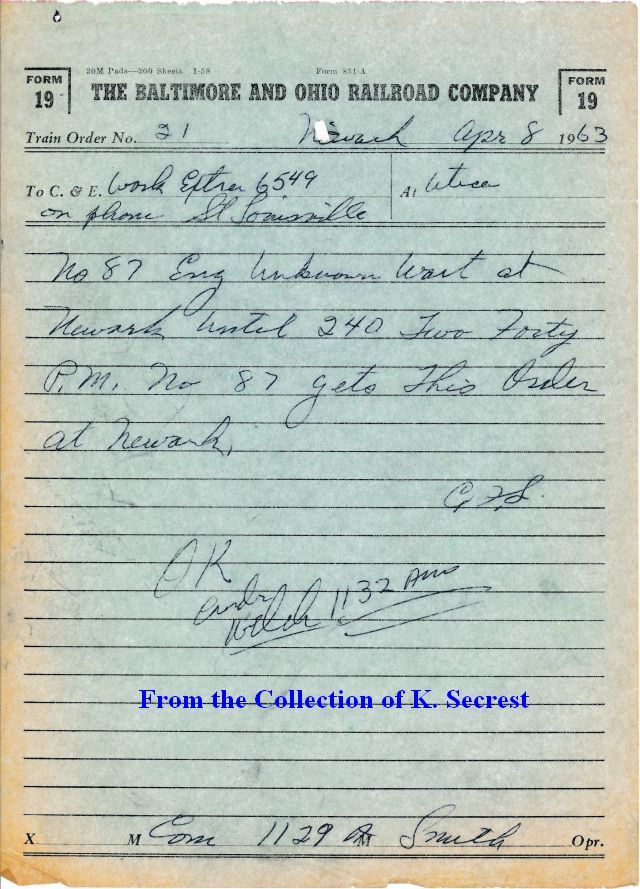 20M Pads—200 Sheets 1-58 Form 851-A
FORM 19 THE BALTIMORE AND OHIO RAILROAD COMPANY FORM 19
Train Order No. 21 Newark Apr 8 1963
To C. & E. Work Extra 6549 At Utica
on phone St Louisville
No 87 Eng Unknown Wait at
Newark Until 240 Two Forty
P.M. No 87 gets This Order
at Newark.
C.F.S.
OK
Condr
Welch 1132 Am
From the Collection of K. Secrest
X M Com 1129 A M Smith Opr.